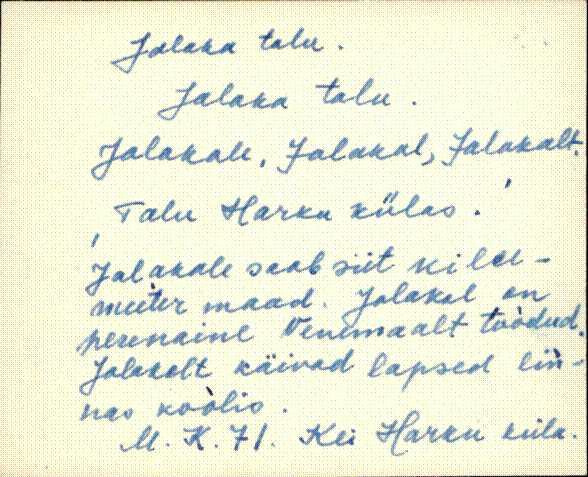 Jalaka talu.
Jalaka talu.
Jalakale, Jalakal, Jalakalt.
Talu Harku külas.
Jalakale saab siit kilu-
meeter maad. Jalakal on
perenaine Venemaalt toodud.
Jalakalt käivad lapsed lin-
nas koolis.
M. K. 71. Kei Harku küla.